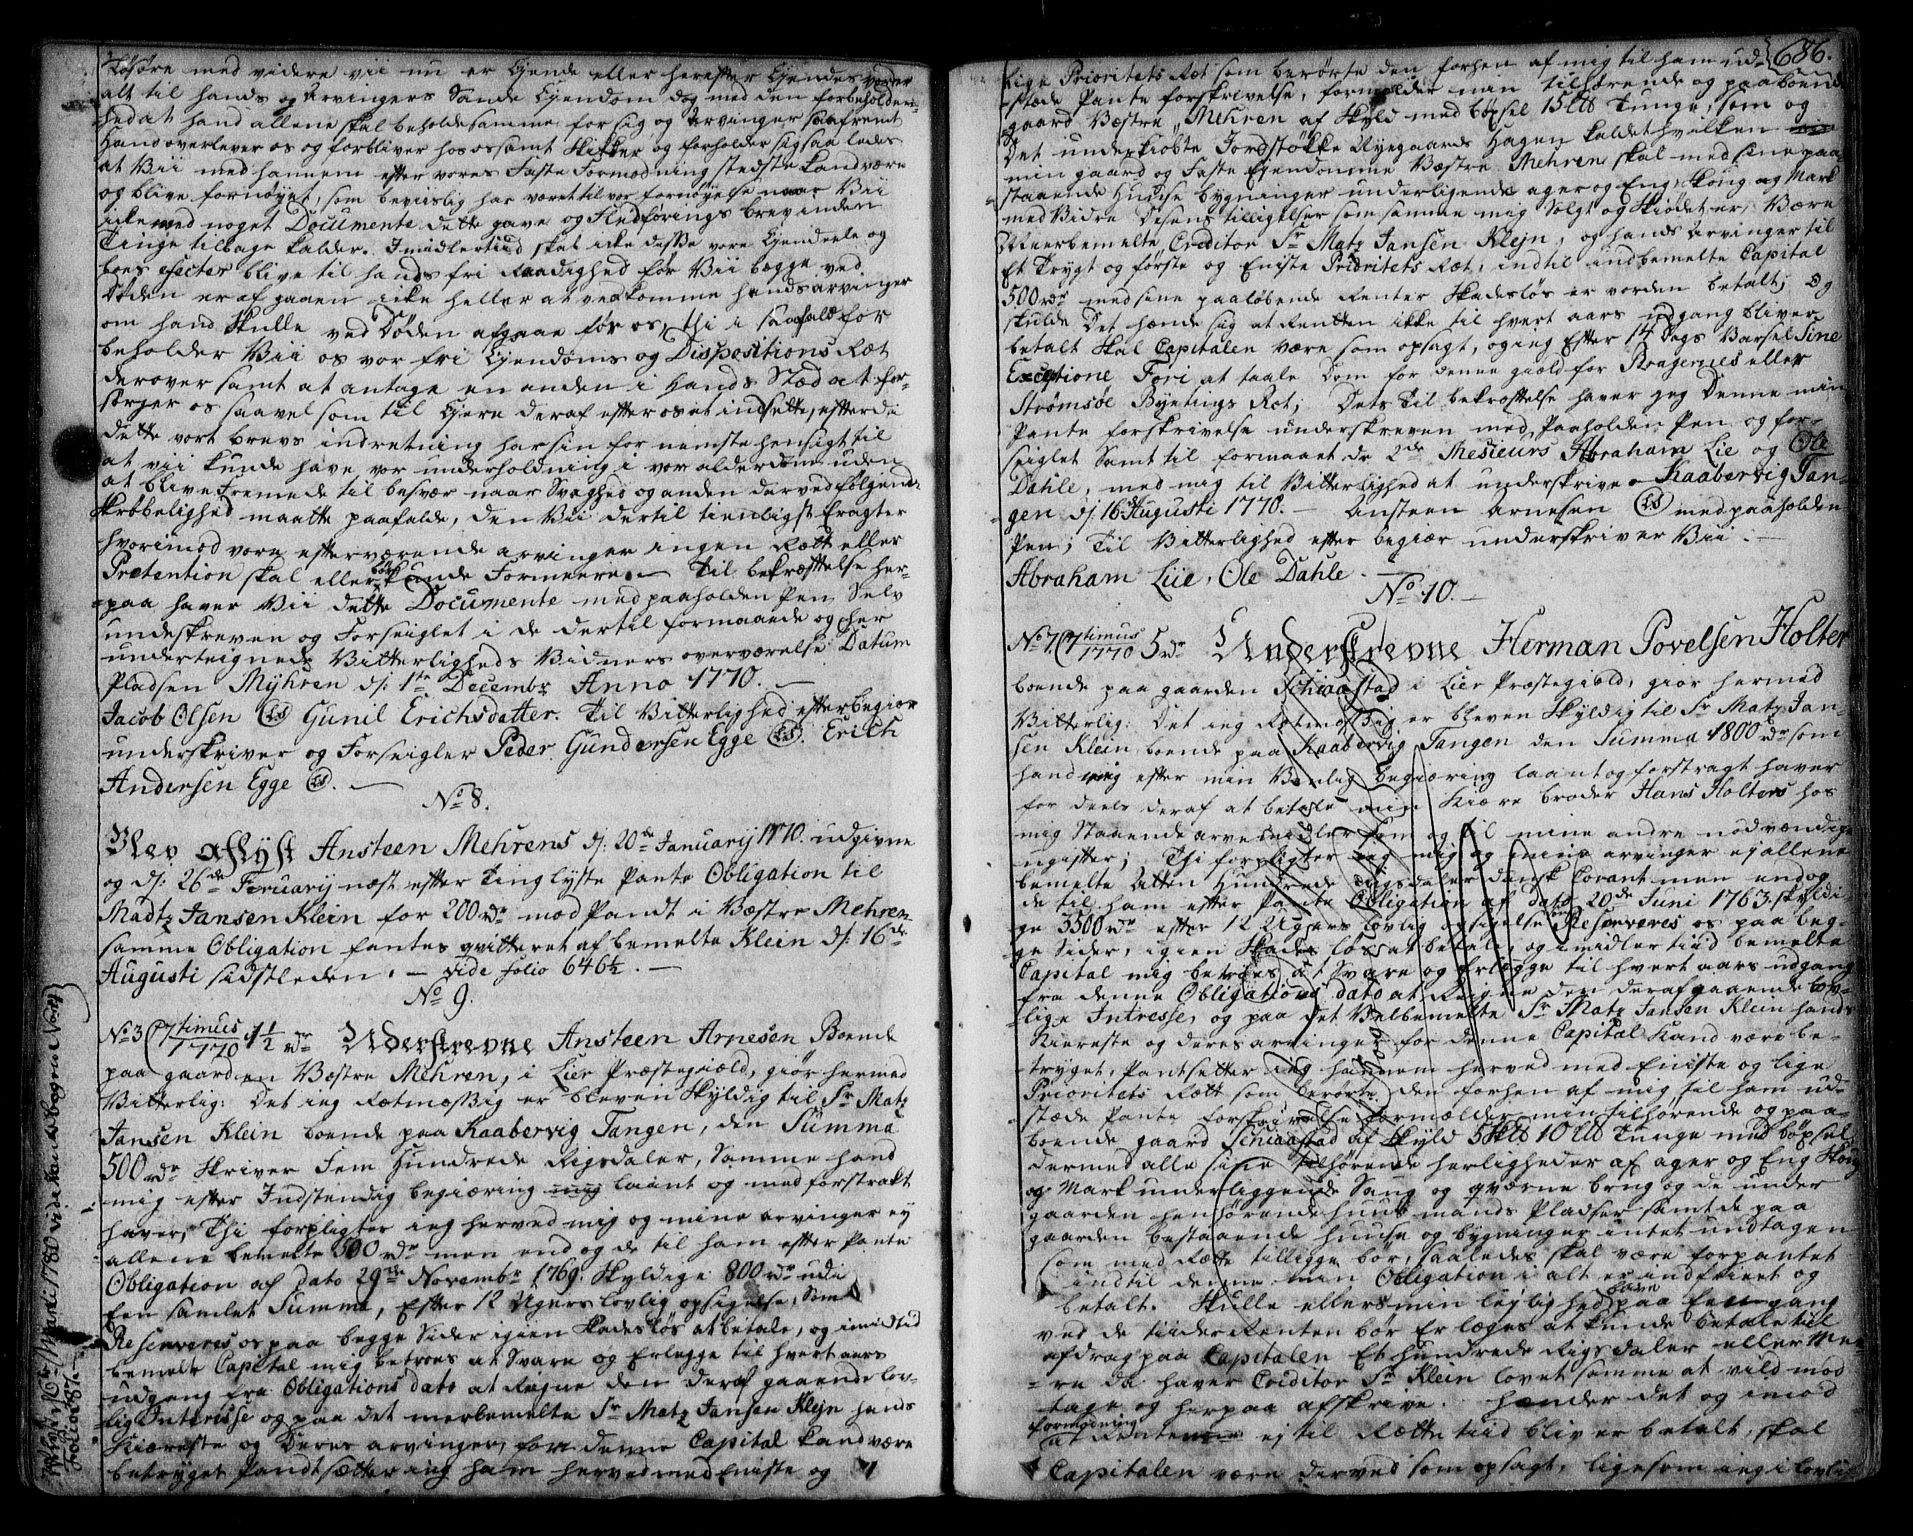 Løsøre med videre vii nu er Ejende eller herefter Ejendes vorder
alt til hands og Arvingers Sande Ejendom dog med den forbeholden-
hed at hand allene skal beholde samme for sig og arvinger saafremt
Hand overlever os og forbliver hos os samt skikker og forholder sig saaledes
at Vii med hannem efter vores Faste Formodning stedste kand være
og blive fornøyet, som beviislig har været til vor fornøyelse naar Vii
icke med noget Documente dette gave og Fledførings brev inden
Tinge tilbage kalder. Imidlertiid skal icke disse vore Ejendeele og
boes effecter blive til hands fri Raadighed før Vii begge ved
Døden er afgaaen icke heller at vedkomme hands arvinger
om hand skulle ved Døden afgaae før os, thi i saafald for
beholder Vii os vor fri Ejendoms og Dispositions Ræt
derover samt at antage en anden i Hands Stæd at for-
sørge os saavel som til Ejere deraf efter os at indsette, efterdi
dette vort brevs indretning har sin fornemste hensigt til
at vii kunde have vor underholdning i vor alderdom uden
at blive Fremede til besvær naar Svaghed og anden derved følgend-
Skrøbelighed maatte paafalde, den Vii dertil tienligst Eragter
hvorimod vore efterværende arvinger ingen Rett eller
Pretention skal eller bør kunde Formeere. — Til bekræfttelse her-
paa haver Vii dette Documente med paaholden Pen Selv
undeskreven og Forseiglet i de dertil formaaede og her
underteignede Vitterligheds Vidners overværelse Datum
Pladsen Myhren d: 1te Decembr Anno 1770. —
Jacob Olsen (LS) Gunil Erichsdatter. Til Vitterlighed efter begiær
underskriver og Forseigler Peder Gundersen Egge (LS). Erich
Andersen Egge (LS). —
No 8.
Blev aflyst Ansteen Mehrens d: 20de Januarij 1770. udgivne
og d: 26de Feruarij næst efter Tinglyste Pante Obligation til
Madtz Jansen Klein for 200 rdr mod Pandt i Væstre Mehren
samme Obligation fantes qvitteret af bemelte Klein d: 16de
Augusti sidstleden. — vide folio 646½. —
No 9.
No 3 (7timus 1770 1½ rdr Underskrevne Ansteen Arnesen Boende
paa gaarden Væstre Mehren, i Lier Præstegiæld, giør hermed
Vitterlig: Det ieg Rætmæssig er bleven Skyldig til Sr Matz
Jansen Klein boende paa Kaabervig Tangen, den Summa
500 rdr Skriver Fem Hundrede Rigsdaler, Samme hand
mig efter Indstendig begiæring mig laant og med forstrakt
haver, Thi forpligter ieg herved mig og mine arvinger ey
allene bemelte 500 rdr men end og de til ham efter Pante
Obligation af dato 29de Novembr 1769. Skyldige 800 rdr udi
Een samlet Summa, Efter 12 Ugers lovlig opsigelse, Som
Reserveres os paa begge Sider igien Skadesløs at betale, og imidtid
bemelte Capital mig betroes at Svare og Erlegge til hvert aars
udgang fra Obligations dato at Regne den deraf gaaende lov-
lig Interesse og paa det merbemelte Sr Matz Jansen Klejn hands
Kiæreste og Deres arvinger, for denne Capital kand være
betrygget Pandtsætter ieg ham herved med Eniste og
686.
lige Prioritets Ræt som berørte den forhen af mig til ham ud-
stæde Pante forskrivelse, formelder min tilhørende og paaboende
gaard Væstre Mehren af Skyld med bøxsel 15 lb Tunge, som og
Det underkiøbte Jordstøkke Ryegaards Hagen kaldet hvilken
min gaard og Faste Ejendomme Væstre Mehren skal med sine paa-
staaende Huuse bygninger underligende ager og Eng, Skoug og Mark
med Vidre Disens tilligelser som samme mig Solgt og Skiødet er, Være
Meerbemelte Creditor Sr Matz Jansen Klejn, og hands Arvinger til
Et Trygt og første og Eniste Prioritets Ræt, indtil indbemelte Capital
500 rdr med sine paaløbende Renter Skadesløs er vorden betalt; og
skulde Det hænde sig at Rentten ikke til hvert aars udgang bliver
betalt Skal Capitalen være som opsagt, og ieg Efter 14 Dags Varsel Sine
Exceptione Fori at taale Dom for denne giæld for Bragernes eller
Strømsøe Byetings Ræt; Dets til bekræftelse haver jeg Denne min
Pante forskrivelse underskreven med Paaholden Pen og for-
seiglet Samt til formaaet de 2de Mesieurs Abraham Lie og Ole
Dahle, med mig til Vitterlighed at underskrive. Kaabervig Tan-
gen d: 16 Augusti 1770. — Ansteen Arnesen (LS) med paaholden
Pen; Til Vitterlighed efter begiær underskriver Vii. —
Abraham Liie, Ole Dahle. —
No. 10. —
No. 7. (7timus 1770 5 rdr Underskrevne Herman Povelsen Holter
boende paa gaarden Schiaastad i Lier Præstegiæld, giør hermed
Vitterlig: Det ieg Rætmæssig er bleven Skyldig til Sr Matz Jan-
sen Klein boende paa Kaabervig Tangen den Summa 1800 rdr som
hand mig efter min Venlig begiæring laant og forstragt haver
for deels deraf at betale min Kiære broder Hans Holters hos
mig Staaende arve midler som og til mine andre nødvændige
ngifter; Thi forpligter ieg mig og mine arvinger ej allene
bemelte Atten Hundrede Rigsdaler dansk Corant men end og
de til ham efter Pante Obligation af dato 20de Juni 1763. skyldi-
ge 3500 rdr efter 12 Ugers lovlig opsigelse som Reserveres os paa beg-
ge Sider, igien Skades løs at betale, og imidler tiid bemelte
Capital mig betroes at Svare og Erlægge til hvert aars udgang
fra denne Obligations dato at Reigne den deraf gaaende lov-
lige Intresse, og paa det Velbemelte Sr Matz Jansen Klein hands
Kiæreste og deres arvinger for denne Capital Kand være be-
trygget, Pantsetter ieg hannem herved med Eniste og lige
Prioritets Rætt som berørte den forhen af mig til ham ud-
stæde Pante forskrivelse formælder min tilhørende og paa-
boende gaard Schiaastad af Skyld 5 skb 10 lb Tunge med bøxsel
dermed alle sine tilhørende herligheder af ager og Eng Skoug
og Mark underliggende Saug og qværne brug og de under
gaarden henhørende huusmands Pladser samt de paa
gaarden bestaaende huuse og bygninger intet undtagen
som med Rætte tilligge bør, saaledes skal være forpantet
indtil denne min Obligation i alt er indfriet og
betalt. Skulle ellers min lejlighed være paa Een gang
ved de tiider Renten bør Erlægges at kunde betale til
afdrag paa Capitalen Et hundrede Rigsdaler eller Mee-
re da haver Creditor Sr Klein lovet samme at vild mod
tage og herpaa afskrive. Hænder det og imod
formodning
at Rentene ej til Rætte tiid bliver betalt, skal
Capitalen være derved som opsagt, ligesom ieg i lovlig